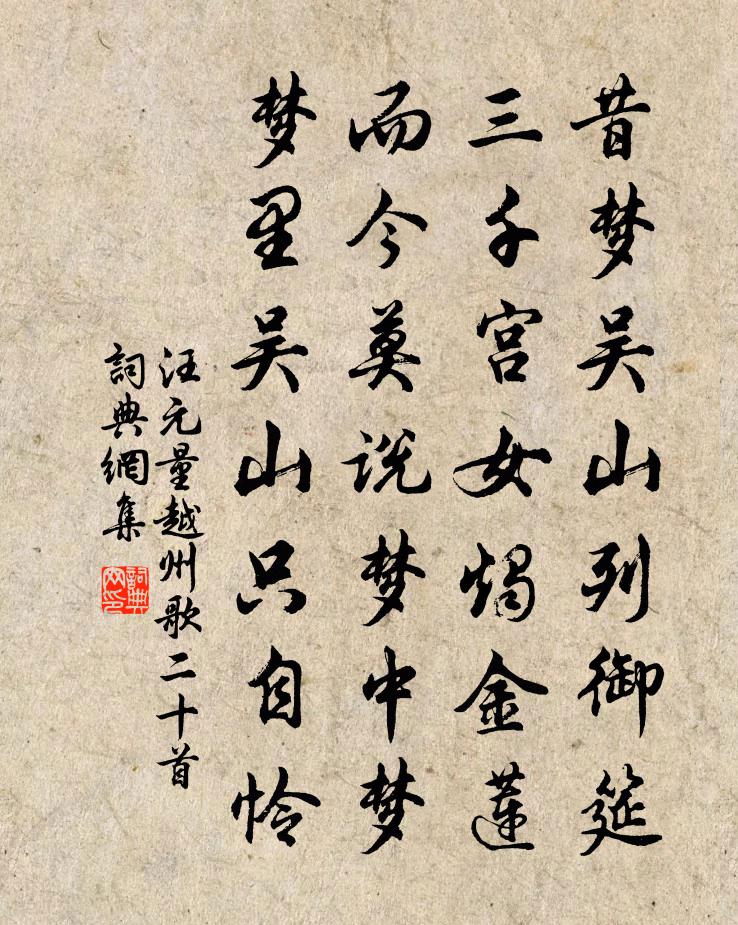 昔梦吴山列御筵
三千宫女烛金莲
而今莫说梦中梦
梦里吴山只自怜
汪元量越州歌二十首
詞典網集
詞典网印